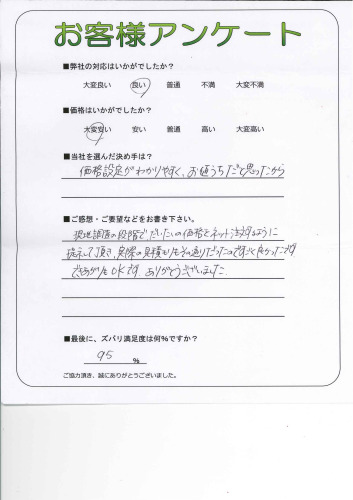 お客様アンケート
■弊社の対応はいかがでしたか？
大変良い 良い 普通 不満 大変不満
■価格はいかがでしたか？
大変安い 安い 普通 高い 大変高い
■当社を選んだ決め手は？
価格設定がわかりやすく、お値うちだと思ったから
■ご感想・ご要望などをお書き下さい。
現地調査の段階で、だいたいの価格をネット
提示して頂き、実際の見積もりもその通りだったのですごく良かったです
できあがりもOKです ありがとうございました。
■最後に、ズバリ満足度は何%ですか？
95 %
ご協力頂き、誠にありがとうございました。